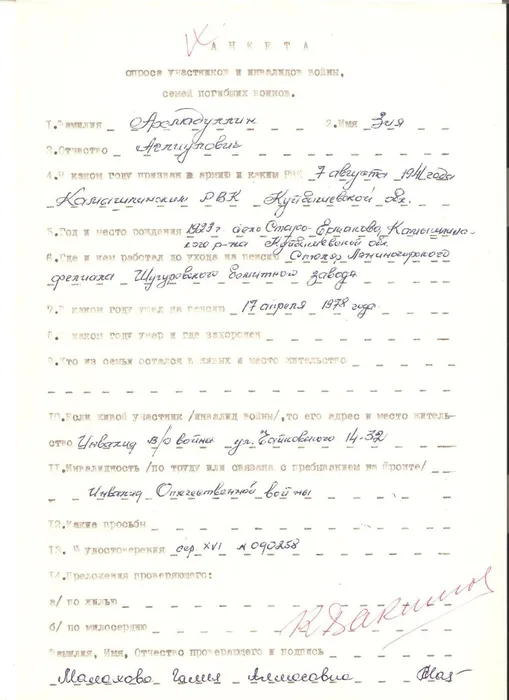 АНКЕТА
опроса участников и инвалидов войны,
семей погибших воинов.
1.Фамилия Асмадуллин 2.Имя Зия
3.Отчество
4.В каком году призван в армию и каким РВК 7 августа 1941 года
Камышлинским РВК Куйбышевской обл.
5.Год и место рождения 1922 г село Старо-Ермаково, Камышлинс-
кого р-на Куйбышевской обл.
6.Где и кем работал до ухода на пенсию Столяр Лениногорского
филиала Шугуровского Битумного завода
7.В каком году ушел на пенсию 17 апреля 1978 года
8. В каком году умер и где захоронен
9.Кто из семьи остался в живых и место жительство
10.Если живой участник /инвалид войны/,то его адрес и место житель-
ство Инвалид в/о войны ул. Чайковского 14-32
11.Инвалидность /по труду или связана с пребыванием на фронте/
Инвалид Отечественной войны
12.Какие просьбы
13. № удостоверения сер. XVI № 090258
14.Предложения проверяющего:
а/ по жилью
б/ по милосердию
Фамилия, Имя, Отчество проверяющего и подпись
Малахова Галия